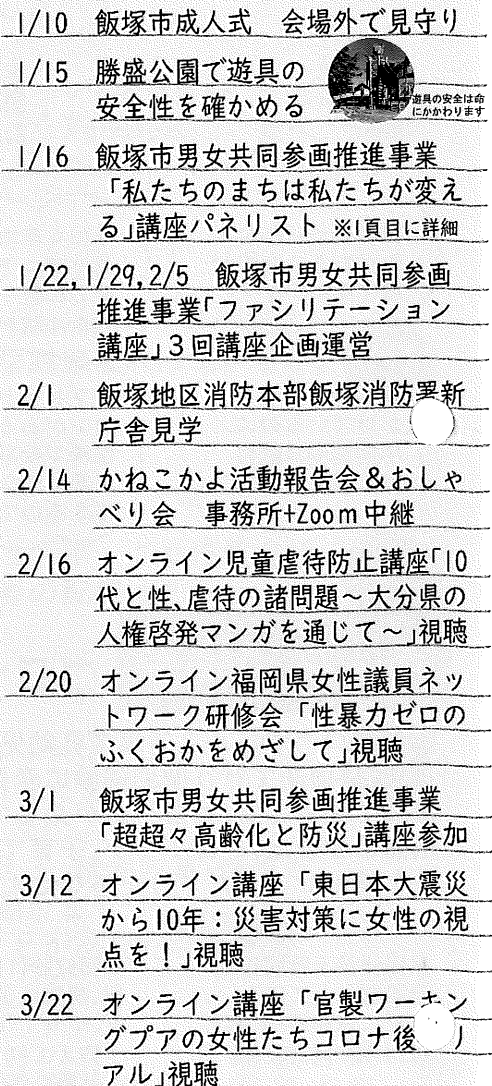 1/10 飯塚市成人式 会場外で見守り
1/15 勝盛公園で遊具の
安全性を確かめる
遊具の安全は命
にかかわります
1/16 飯塚市男女共同参画推進事業
「私たちのまちは私たちが変え
る」講座パネリスト ※1頁目に詳細
1/22,1/29,2/5 飯塚市男女共同参画
推進事業「ファシリテーション
講座」3回講座企画運営
2/1 飯塚地区消防本部飯塚消防署新
庁舎見学
2/14 かねこかよ活動報告会&おしゃ
べり会 事務所+Zoom中継
2/16 オンライン児童虐待防止講座「10
代と性、虐待の諸問題~大分県の
人権啓発マンガを通じて~」視聴
2/20 オンライン福岡県女性議員ネッ
トワーク研修会「性暴力ゼロの
ふくおかをめざして」視聴
3/1 飯塚市男女共同参画推進事業
「超超々高齢化と防災」講座参加
3/12 オンライン講座「東日本大震災
から10年:災害対策に女性の視
点を!」視聴
3/22 オンライン講座「官製ワーキン
グプアの女性たちコロナ後 リ
アル」視聴